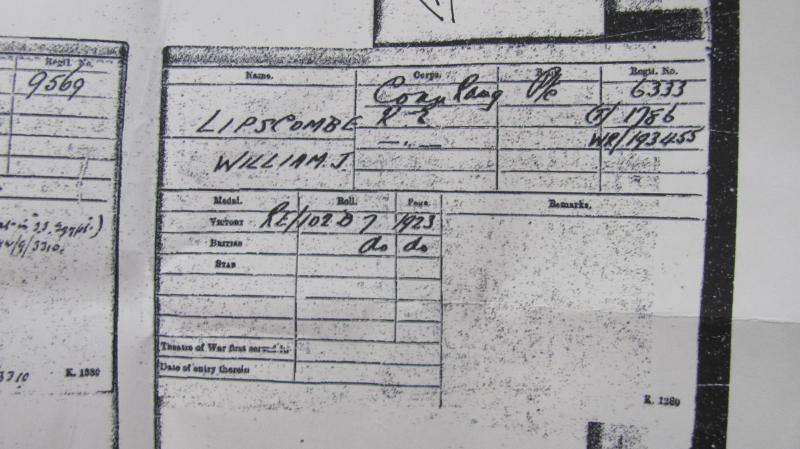 Regtl. No.
9569
3310.
3310
K. 1380
Name.
Corps.
Rank
Regtl. No.
Conn. Rang
Pte
6333
LIPSCOMBE
R. E
1786
—„—
WR/193455
WILLIAM. J.
Medal.
Roll.
Page.
Remarks.
VICTORY
RE/102 B 7
1923
BRITISH
do
do
STAR
Theatre of War first served in
Date of entry therein
K. 1380